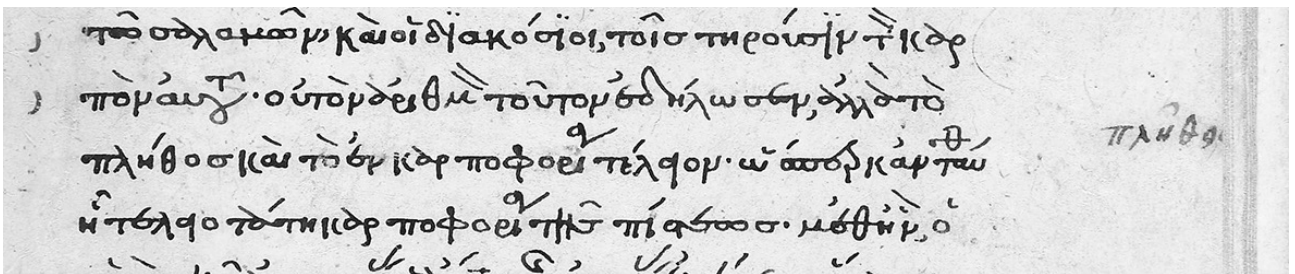 τῶ σαλαμῶν, καὶ οἱ διακόσϊοι, τοῖς τηροῦσϊν τὸν καρ
πὸν αυτοῦ· οὐ τὸν ἀριθμὸν τοῦτον ἐδήλωσεν, ἀλλὰ τὸ
πλῆθος καὶ τὸ ἐν καρποφορία τέλειον· ὥσπερ κἀνταῦθα
ἡ τελειοτάτη καρποφορία τῆς πίστεως· μεθ ἣν, ὁ
πλῆθος